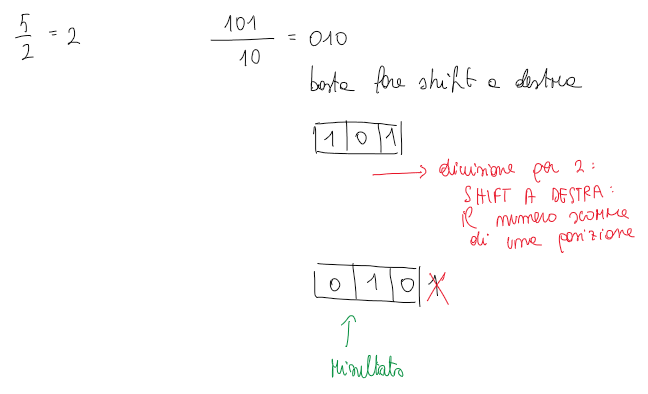 5/2 = 2
101/10 = 010
basta fare shift a destra
1 0 1
divisione per 2:
SHIFT A DESTRA:
il numero scorre
di una posizione
0 1 0 1
risultato